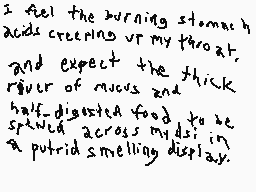 I feel the burning stomach
acids creeping up my throat,
and expect the thick
river of mucus and
half-digested food to be
spewed across my dsi in
a putrid smelling display.